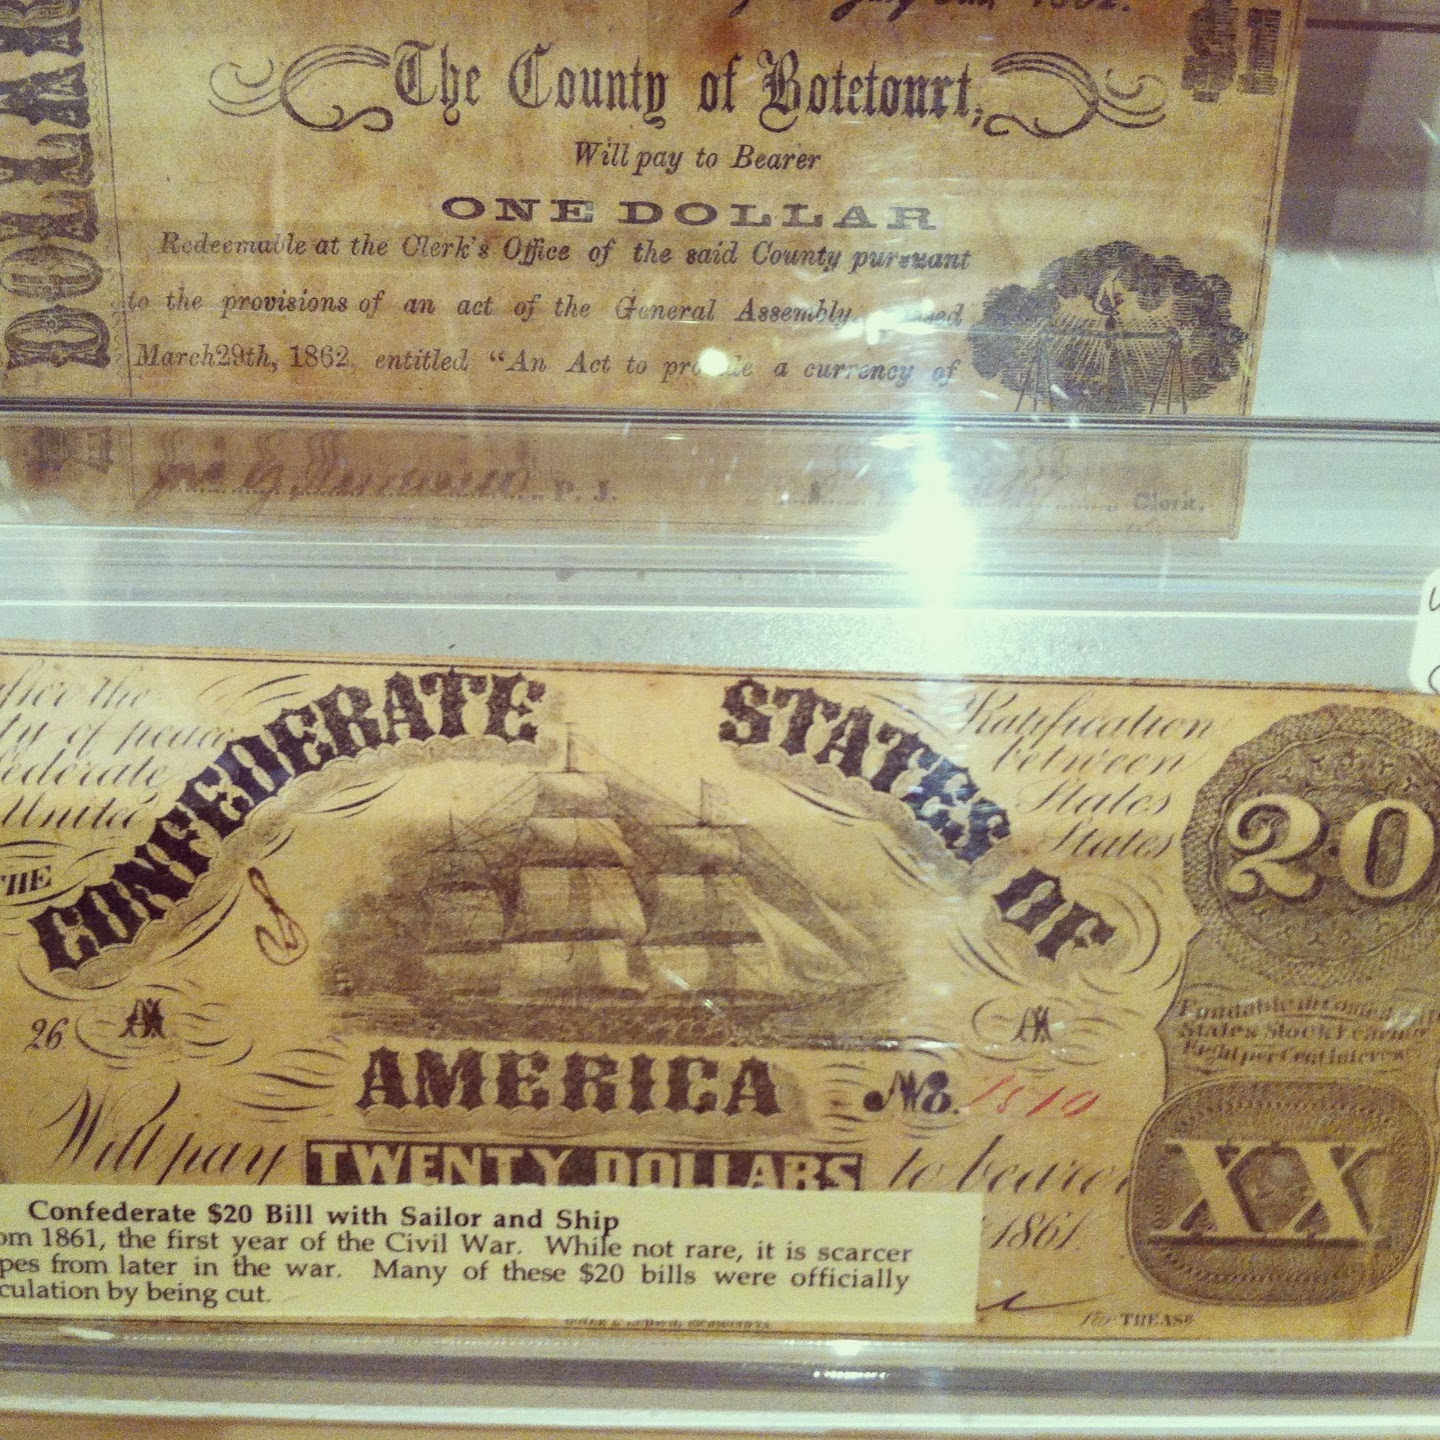 DOLLAR
$1
The County of Botetourt,
Will pay to Bearer
ONE DOLLAR
Redeemable at the Clerk's Office of the said County pursuant
to the provisions of an act of the General Assembly,
March 29th, 1862, entitled "An Act to provide a currency of
P. J.
Clerk.
the
of peace
United
THE
CONFEDERATE STATES OF
AMERICA
Ratification
between
States
States
20
26 A
A
No. 1810
Fundable in Confederate
States Stock bearing
Eight per Cent interest
Will pay TWENTY DOLLARS to bearer
XX
1861.
For TREAS
Confederate $20 Bill with Sailor and Ship
om 1861, the first year of the Civil War. While not rare, it is scarcer
pes from later in the war. Many of these $20 bills were officially
culation by being cut.